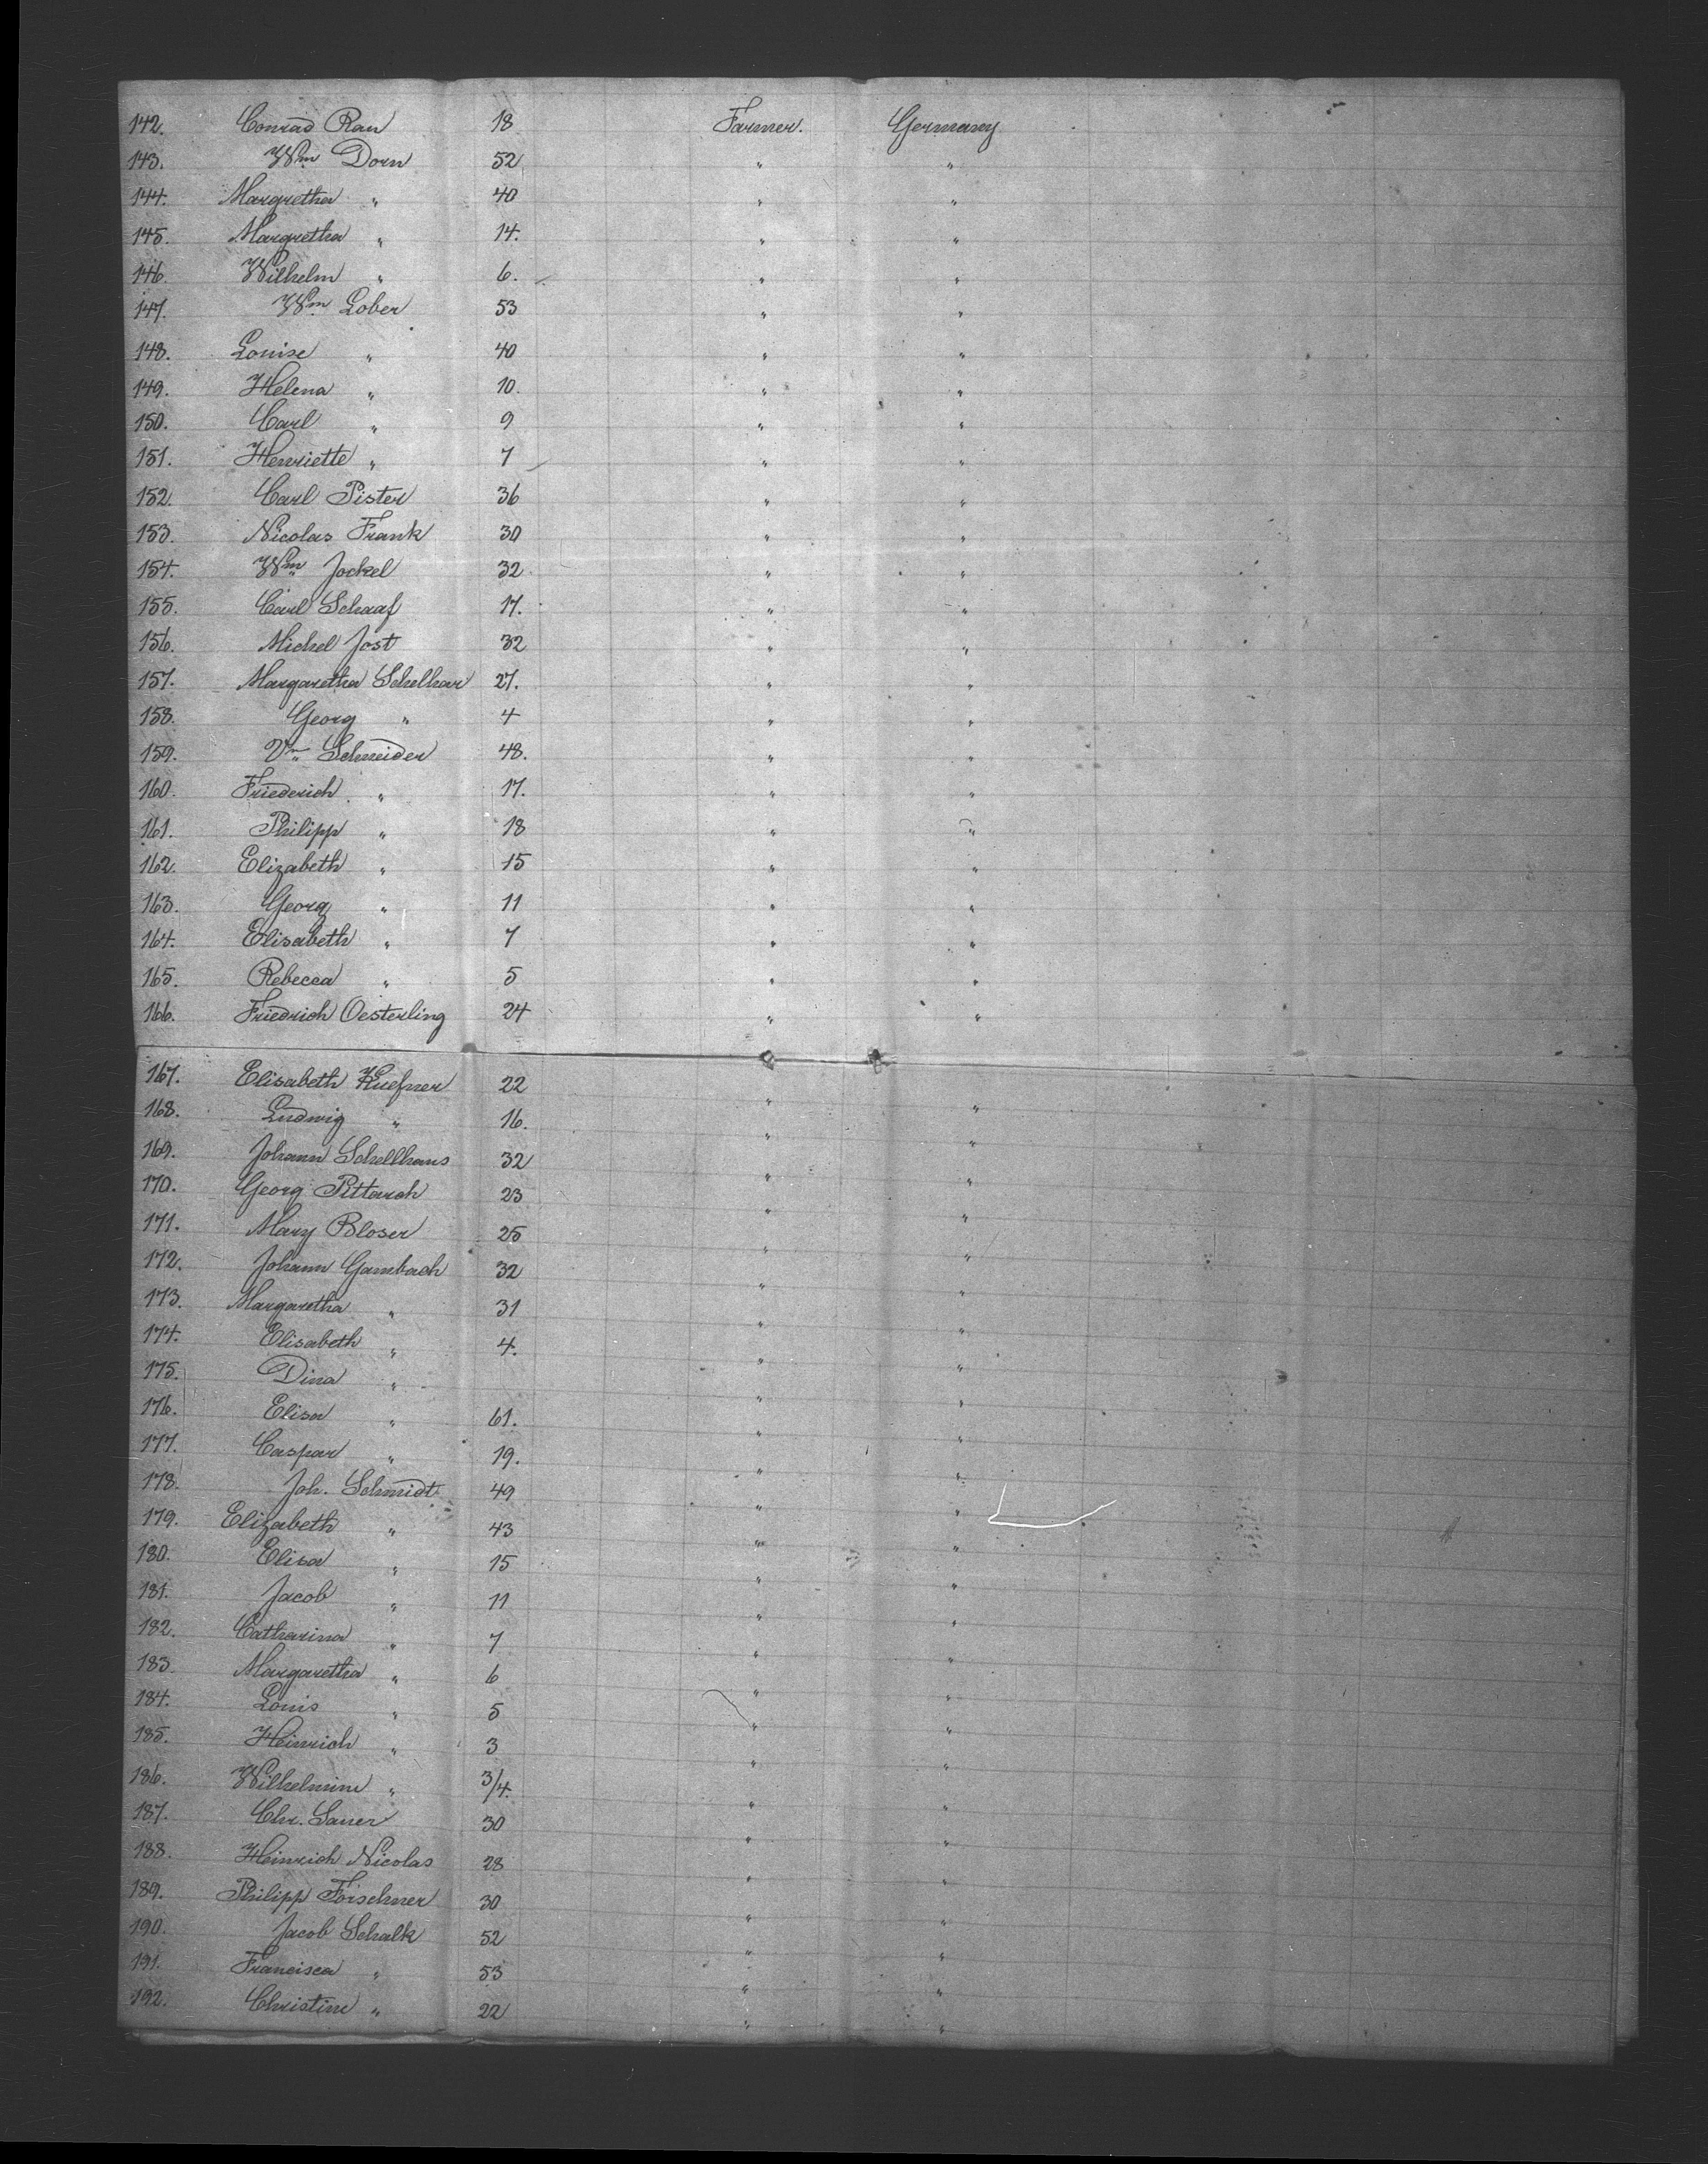 142. Conrad Rau 18 Farmer. Germany
143. Wm Dorn 52 " "
144. Margretha " 40 " "
145. Margretha " 14. " "
146. Wilhelm " 6. " "
147. Wm Lober 53 " "
148. Louise " 40 " "
149. Helena " 10. " "
150. Carl " 9 " "
151. Henriette " 7 " "
152. Carl Pister 36 " "
153. Nicolas Frank 30 " "
154. Wm Jockel 32 " "
155. Carl Schaaf 17. " "
156. Michel Jost 32 " "
157. Margaretha Schelhar 27. " "
158. Georg " 4 " "
159. Schneider 48. " "
160. Friederich " 17. " "
161. Philipp " 18 " "
162. Elizabeth " 15 " "
163. Georg " 11 " "
164. Elisabeth " 7 " "
165. Rebecca " 5 " "
166. Friedrich Oesterling 24 " "
167. Elisabeth Kuefner 22 " "
168. Ludwig " 16. " "
169. Johann Schellhaus 32 " "
170. Georg Pittarch 23 " "
171. Mary Bloser 25 " "
172. Johann Gambach 32 " "
173. Margaretha " 31 " "
174. Elisabeth " 4. " "
175. Dina " " "
176. Elisa " 61. " "
177. Caspar " 19. " "
178. Joh. Schmidt 49 " "
179. Elizabeth " 43 " "
180. Elisa " 15 " "
181. Jacob " 11 " "
182. Catharina " 7 " "
183. Margaretha " 6 " "
184. Louis " 5 " "
185. Heinrich " 3 " "
186. Wilhelmine " 3/4. " "
187. Chr. Sauer 30 " "
188. Heinrich Nicolas 28 " "
189. Philipp Foischner 30 " "
190. Jacob Schalk 52 " "
191. Francisca " 53 " "
192. Christine " 22 " "